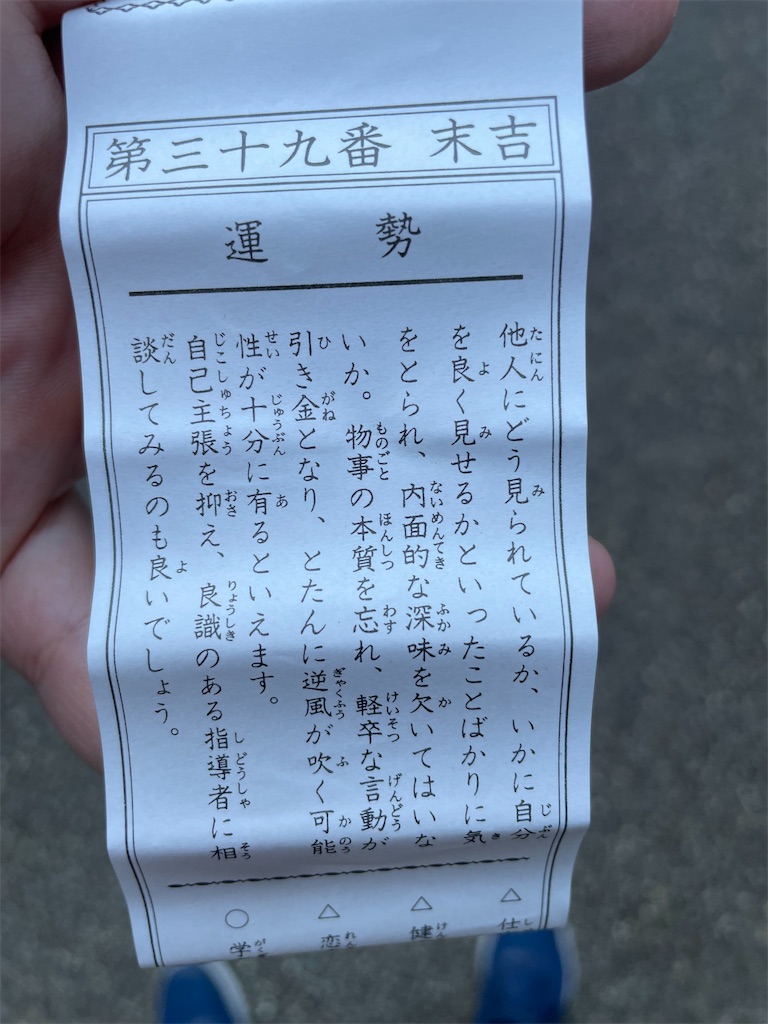 第三十九番 末吉
運勢
他人にどう見られているか、いかに自分
を良く見せるかといったことばかりに気
をとられ、内面的な深味を欠いてはいな
いか。物事の本質を忘れ、軽卒な言動が
引き金となり、とたんに逆風が吹く可能
性が十分に有るといえます。
自己主張を抑え、良識のある指導者に相
談してみるのも良いでしょう。
△ 仕
△ 健
△ 恋
○ 学